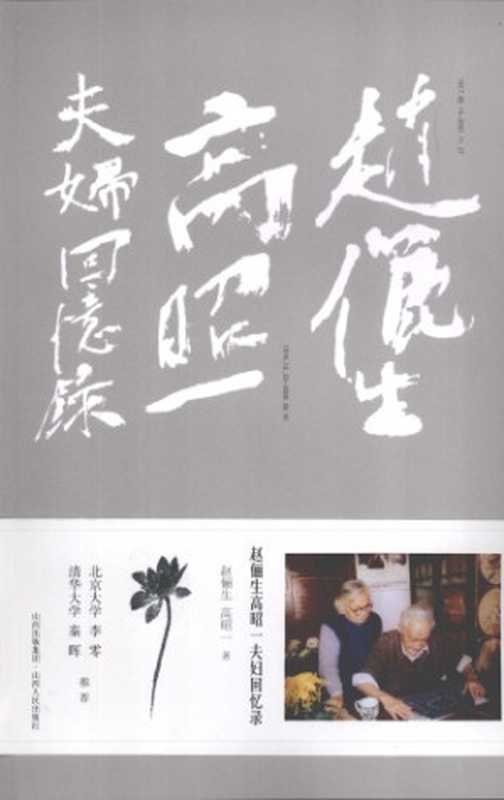 趙儷生
高昭一
夫婦回憶録
赵俪生高昭一夫妇回忆录
赵俪生 高昭一 著
北京大学 李零
清华大学 秦晖
推荐
山西出版集团·山西人民出版社